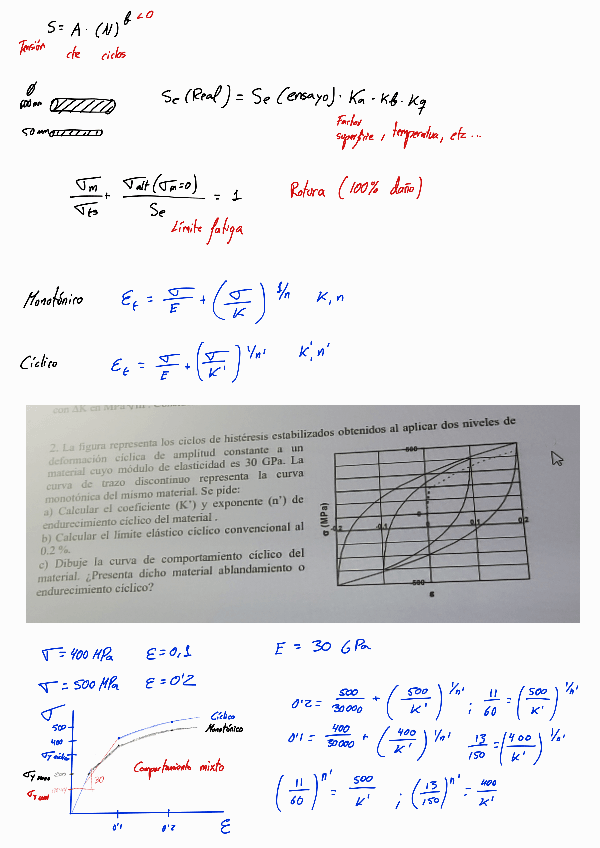 S = A · (N)^b <0
Tensión cte ciclos
Ø
50 mm
Se (Real) = Se (ensayo) · Ka · Kb · Kq
Factor
superficie, temperatura, etc...
σm/σts + σalt(σm=0)/Se = 1
Rotura (100% daño)
Límite fatiga
Monotónico εt = σ/E + (σ/K)^1/n K, n
Cíclico εt = σ/E + (σ/K')^1/n' K', n'
con ΔK en MPa√m.
2. La figura representa los ciclos de histéresis estabilizados obtenidos al aplicar dos niveles de
deformación cíclica de amplitud constante a un
material cuyo módulo de elasticidad es 30 GPa. La
curva de trazo discontinuo representa la curva
monotónica del mismo material. Se pide:
a) Calcular el coeficiente (K') y exponente (n') de
endurecimiento cíclico del material .
b) Calcular el límite elástico cíclico convencional al
0.2 %.
c) Dibuje la curva de comportamiento cíclico del
material. ¿Presenta dicho material ablandamiento o
endurecimiento cíclico?
500
σ (MPa)
-0.2 -0.1 0 0.1 0.2
-500
ε
σ = 400 MPa ε = 0,1
σ = 500 MPa ε = 0'2
E = 30 GPa
σ
500
400
Cíclico
Monotónico
Comportamiento mixto
30
0'1 0'2 ε
0'2 = 500/30000 + (500/K')^1/n' ; 11/60 = (500/K')^1/n'
0'1 = 400/30000 + (400/K')^1/n' 13/150 = (400/K')^1/n'
(11/60)^n' = 500/K' ; (13/150)^n' = 400/K'